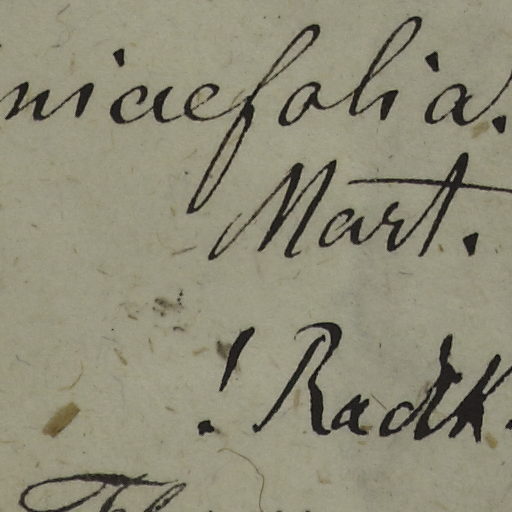 niaefolia.
Mart.
! Radlk.